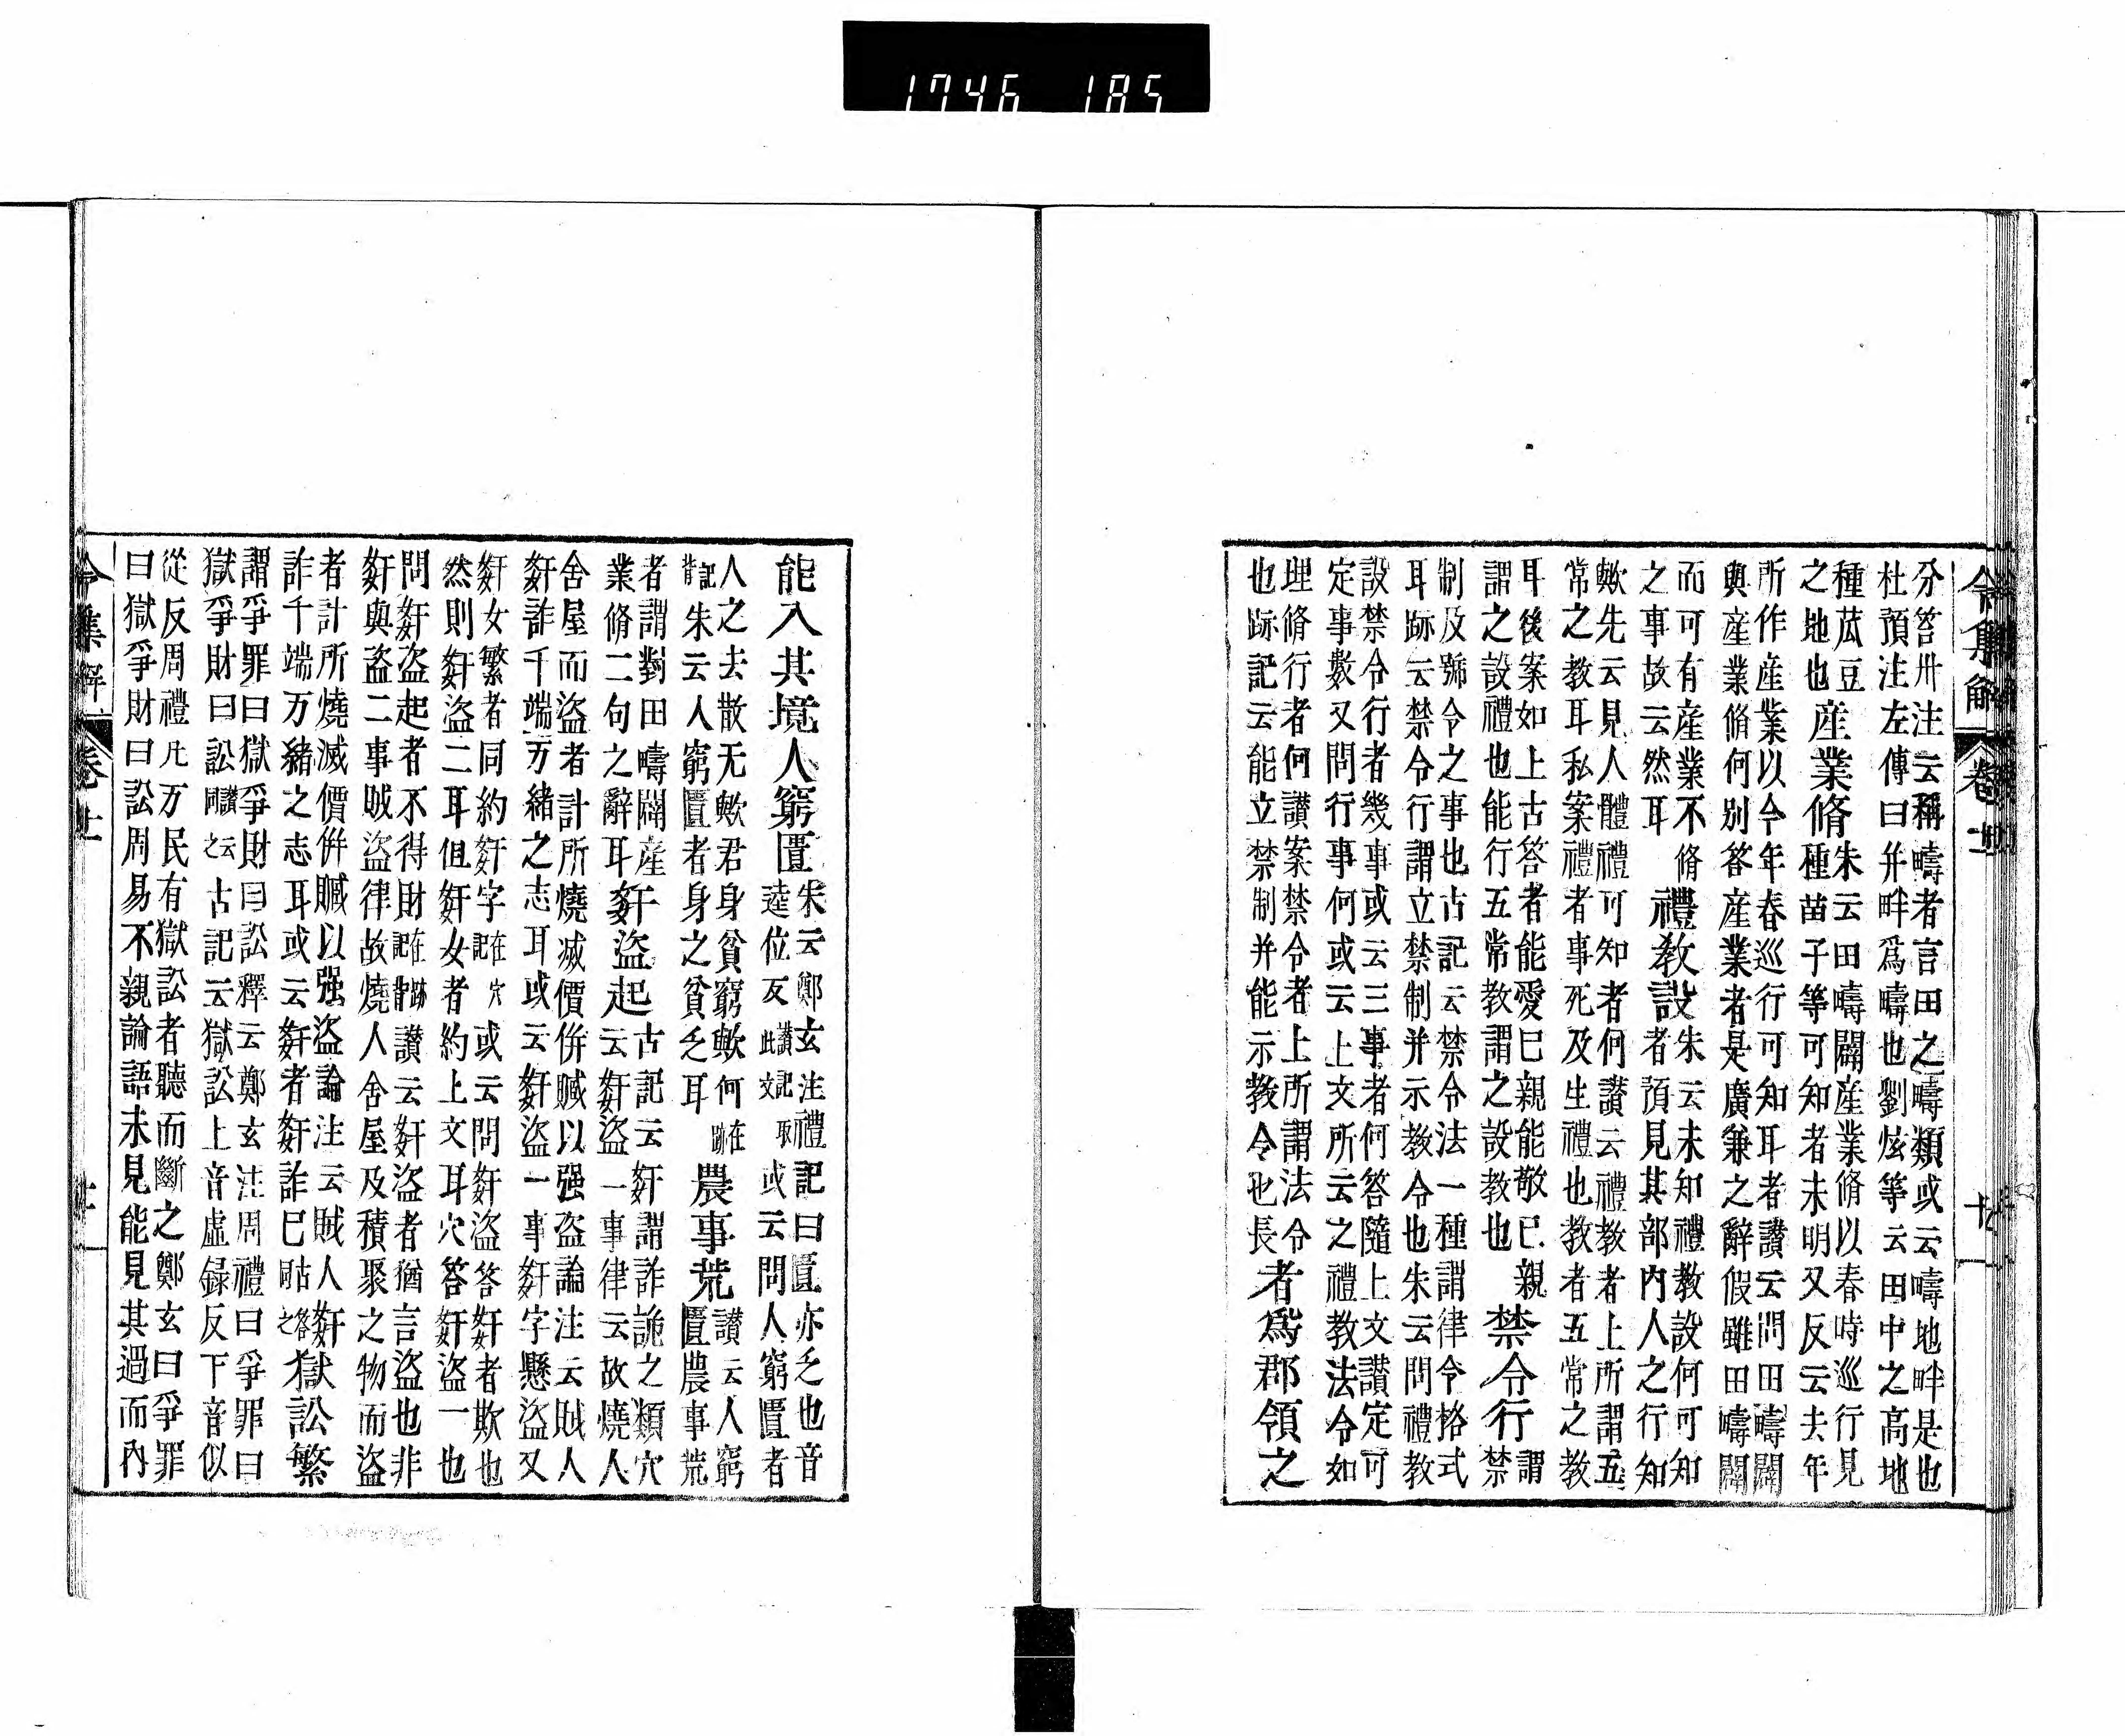 1746 185
令集解 卷十 十
分笞卅注云稱疇者言田之疇類或云疇地畔是也
杜預注左傳曰并畔爲疇也劉炫等云田中之高地
種苽豆
之地也
産業脩
朱云田疇闢産業脩以春時巡行見
種苗子等可知者未明又反云去年
所作産業以今年春巡行可知耳者讃云問田疇闢
與産業脩何別答産業者是廣兼之辭假雖田疇闢
而可有産業不脩
之事故云然耳
禮教設
朱云未知禮教設何可知
者預見其部内人之行知
歟先云見人體禮可知者何讃云禮教者上所謂五
常之教耳私案禮者事死及生禮也教者五常之教
耳後案如上古答者能愛已親能敬已親
謂之設禮也能行五常教謂之設教也
禁令行
謂
禁
制及號令之事也古記云禁令法一種謂律令格式
耳跡云禁令行謂立禁制并示教令也朱云問禮教
設禁令行者幾事或云三事者何答隨上文讃定可
定事數又問行事何或云上文所云之禮教法令如
理脩行者何讃案禁令者上所謂法令
也跡記云能立禁制并能示教令也長
者爲郡領之
能入其境人窮匱
朱云鄭玄注禮記曰匱亦乏也音
逵位反讃記取此文或云問人窮匱者
人之去散无歟君身貧窮歟何在跡
記背朱云人窮匱者身之貧乏耳
農事荒
讃云人窮
匱農事荒
者謂對田疇闢産
業脩二句之辭耳
姧盜起
古記云姧謂詐詭之類穴
云姧盜一事律云故燒人
舍屋而盜者計所燒减價併贓以强盜論注云賊人
姧詐千端万緒之志耳或云姧盜一事姧字懸盜又
姧女繁者同約姧字在穴記或云問姧盜答姧者欺也
然則姧盜二耳但姧女者約上文耳穴答姧盜一也
問姧盜起者不得財在跡記背讃云姧盜者猶言盜也非
姧與盜二事賊盜律故燒人舍屋及積聚之物而盜
者計所燒减價併贓以强盜論注云賊人姧
詐千端万緒之志耳或云姧者姧詐巳
獄訟繁
謂爭罪曰獄爭財曰訟釋云鄭玄注周禮曰爭罪曰
獄爭財曰訟讃云同之古記云獄訟上音虛録反下音似
從反周禮凡万民有獄訟者聽而斷之鄭玄曰爭罪
曰獄爭財曰訟周易不親論語未見能見其過而内
令集解 卷十